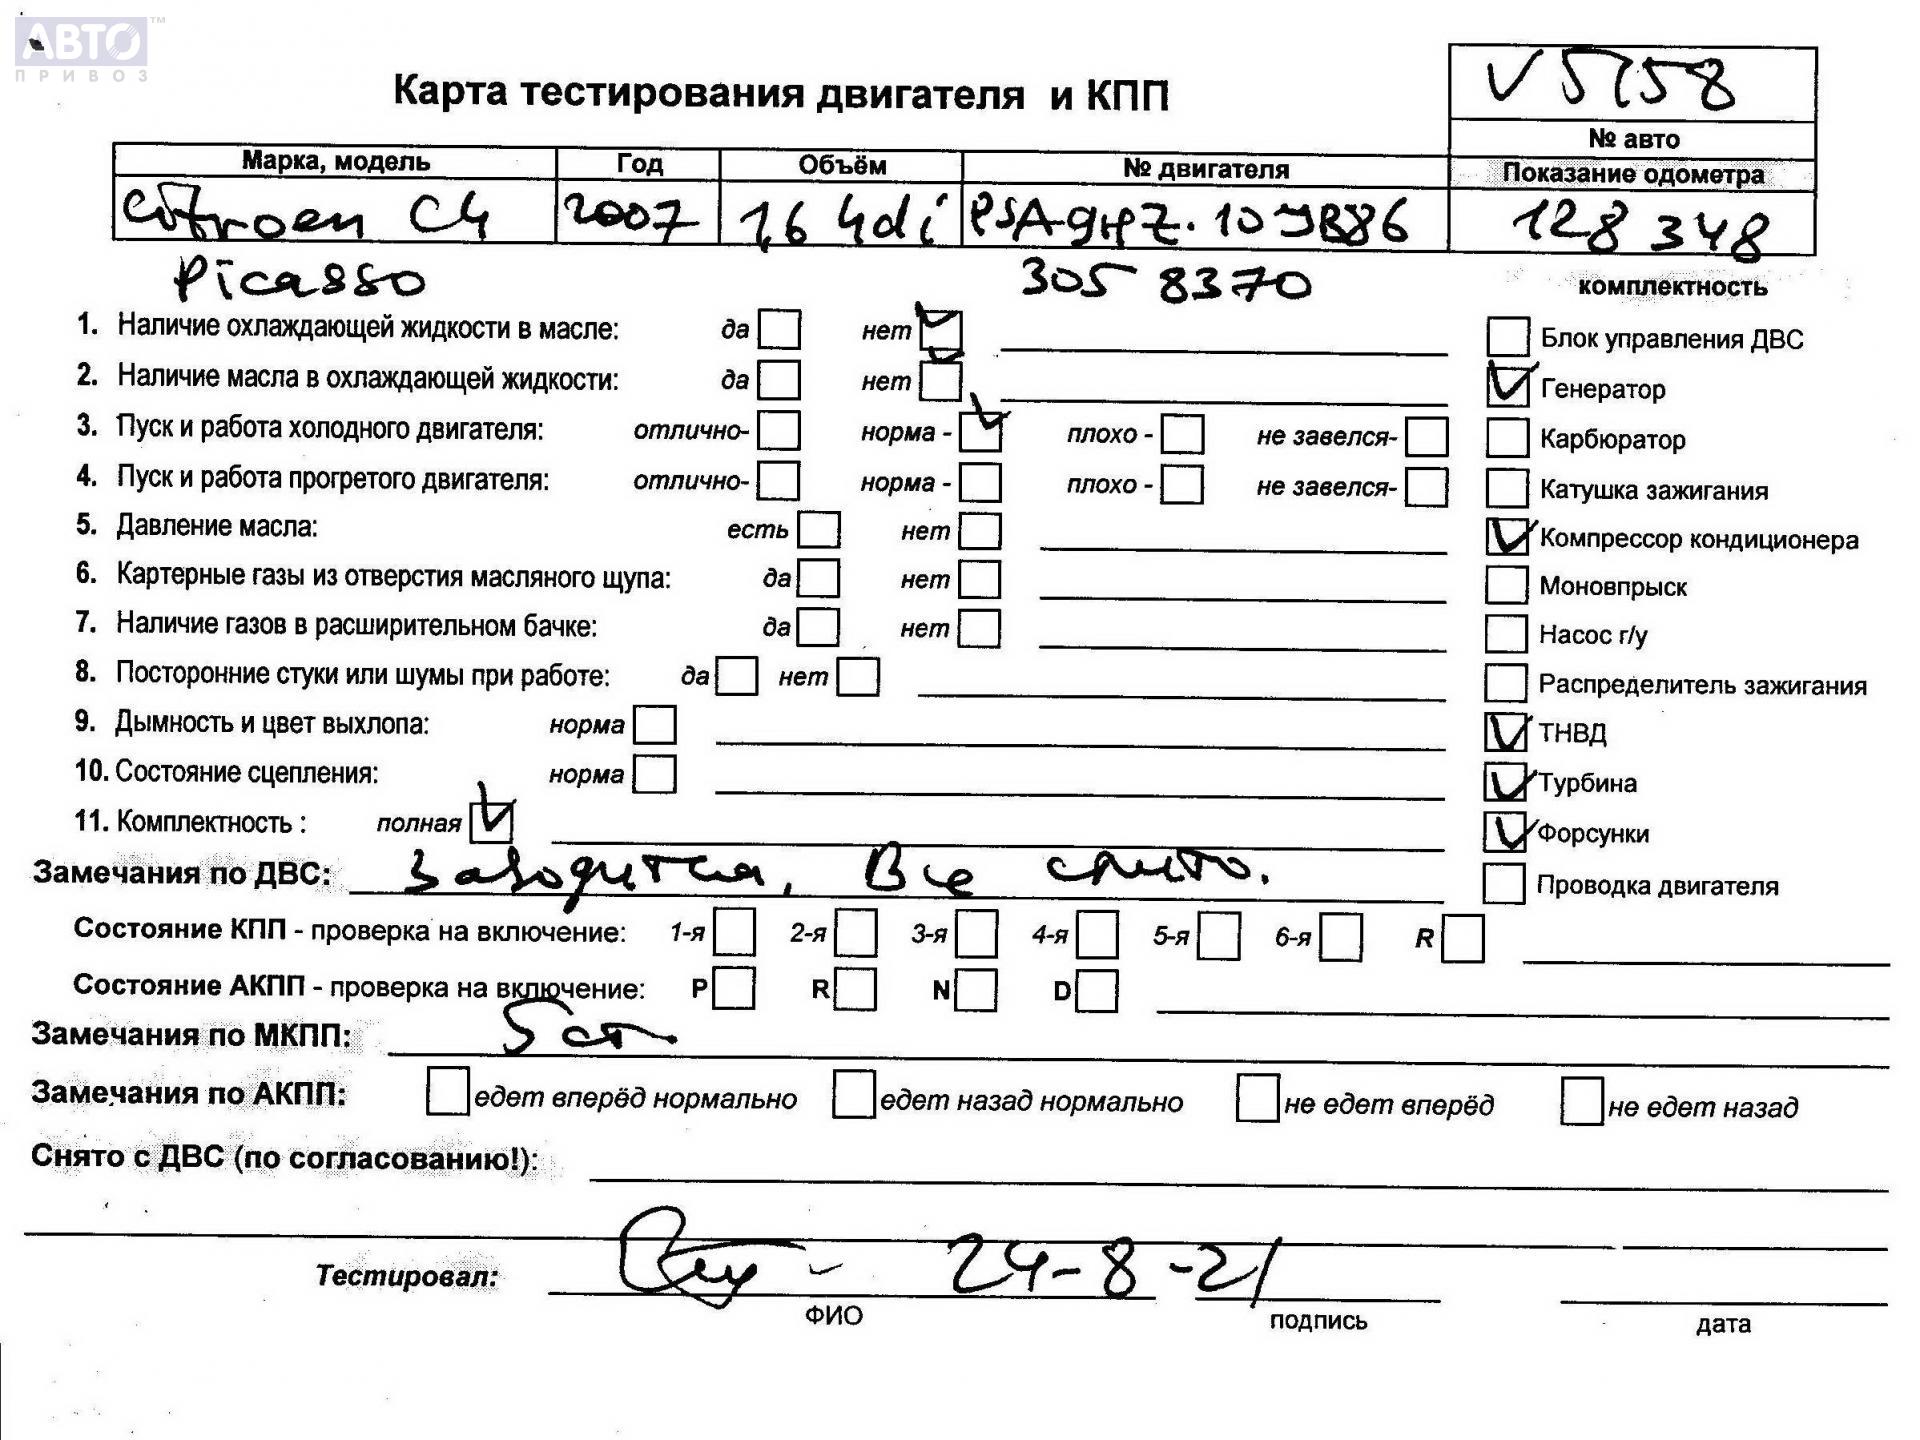 АВТО™
ПРИВОЗ
Карта тестирования двигателя и КПП
V 5758
№ авто
Марка, модель Год Объём № двигателя Показание одометра
Citroen C4 2007 1,6 hdi 128 348
Picasso 305 8370
комплектность
1. Наличие охлаждающей жидкости в масле: да нет
Блок управления ДВС
2. Наличие масла в охлаждающей жидкости: да нет
Генератор
3. Пуск и работа холодного двигателя: отлично- норма - плохо - не завелся-
Карбюратор
4. Пуск и работа прогретого двигателя: отлично- норма - плохо - не завелся-
Катушка зажигания
5. Давление масла: есть нет
Компрессор кондиционера
6. Картерные газы из отверстия масляного щупа: да нет
Моновпрыск
7. Наличие газов в расширительном бачке: да нет
Насос г/у
8. Посторонние стуки или шумы при работе: да нет
Распределитель зажигания
9. Дымность и цвет выхлопа: норма
ТНВД
10. Состояние сцепления: норма
Турбина
11. Комплектность : полная
Форсунки
Замечания по ДВС: Заводится, Все снято.
Проводка двигателя
Состояние КПП - проверка на включение: 1-я 2-я 3-я 4-я 5-я 6-я R
Состояние АКПП - проверка на включение: P R N D
Замечания по МКПП: 5 ст
Замечания по АКПП: едет вперёд нормально едет назад нормально не едет вперёд не едет назад
Снято с ДВС (по согласованию!):
Тестировал: 24-8-21
ФИО подпись дата